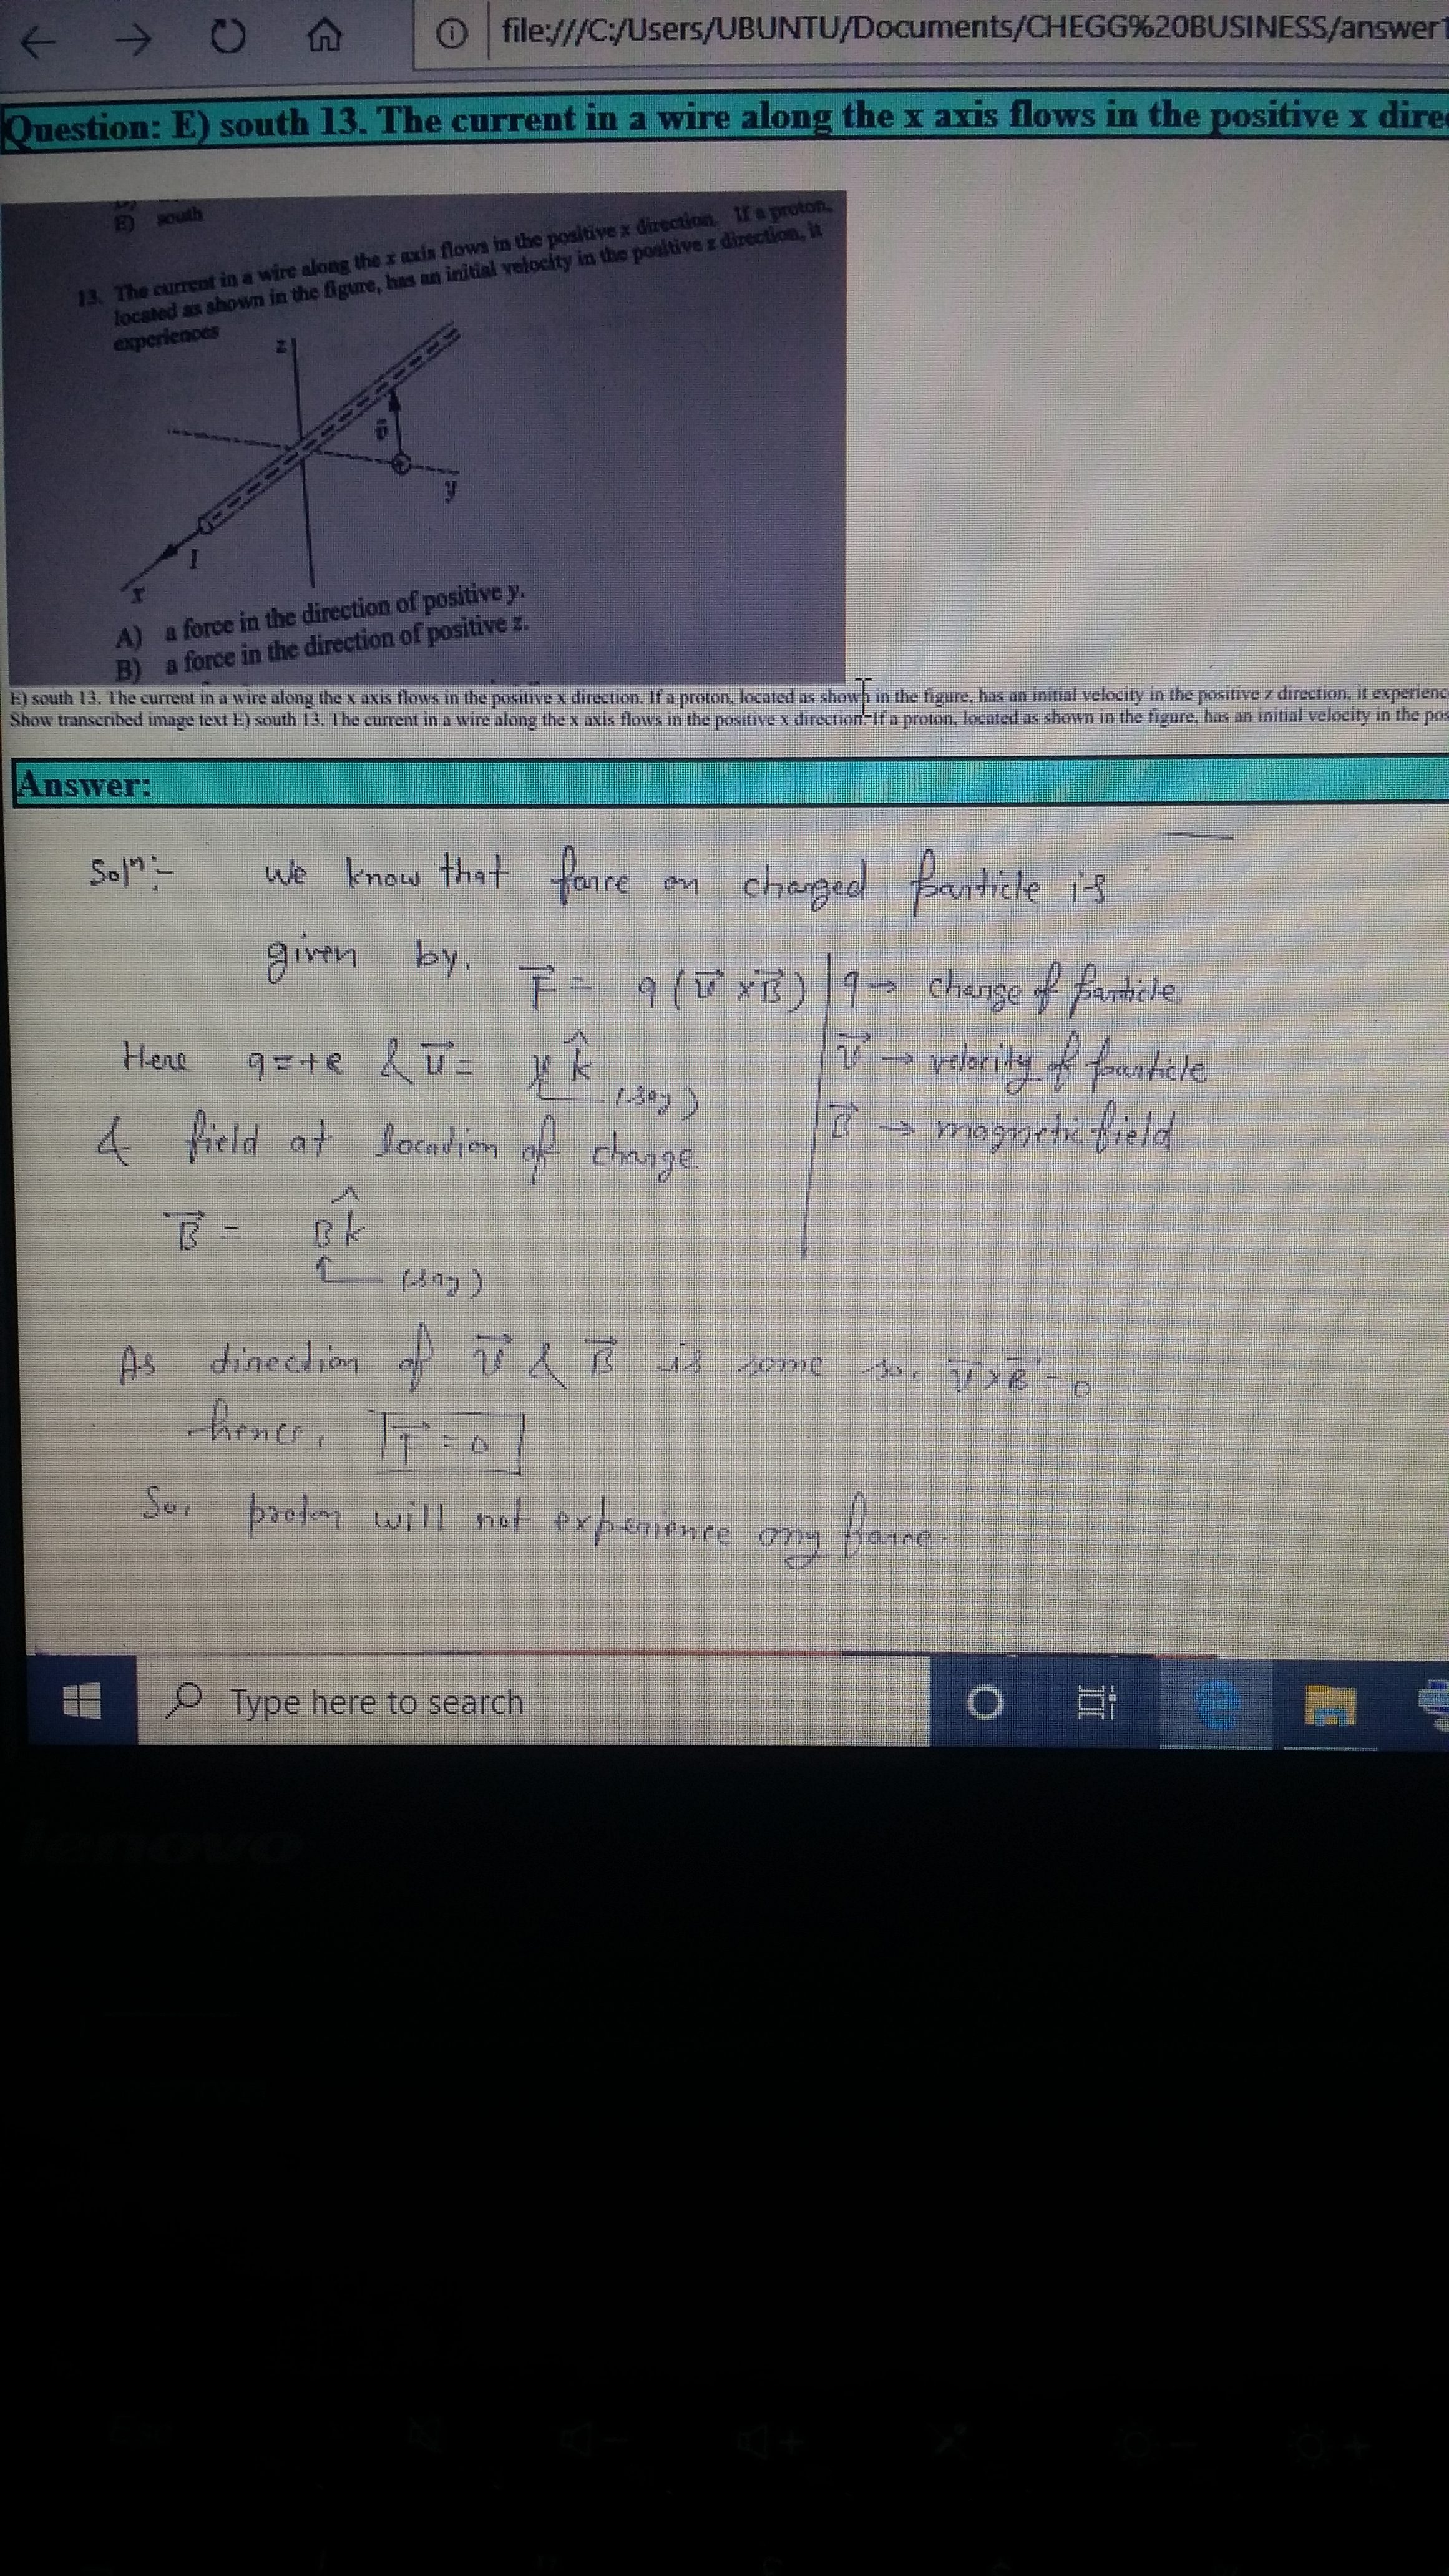 file:///C:/Users/UBUNTU/Documents/CHEGG%20BUSINESS/answer1
Question: E) south 13. The current in a wire along the x axis flows in the positive x dire
E) south
13. The current in a wire along the x axis flows in the positive x direction. If a proton,
located as shown in the figure, has an initial velocity in the positive z direction, it
experiences
z
v
y
I
x
A) a force in the direction of positive y.
B) a force in the direction of positive z.
E) south 13. The current in a wire along the x axis flows in the positive x direction. If a proton, located as shown in the figure, has an initial velocity in the positive z direction, it experienc
Show transcribed image text E) south 13. The current in a wire along the x axis flows in the positive x direction. If a proton, located as shown in the figure, has an initial velocity in the pos
Answer:
Solⁿ:- We know that force on charged particle is
given by,
F⃗ = q(v⃗ × B⃗) | q → charge of particle
Here q = +e & v⃗ = v k̂ (say)
v⃗ → velocity of particle
& field at location of charge
B⃗ → magnetic field
B⃗ = B k̂
(say)
As direction of v⃗ & B⃗ is same so, v⃗ × B⃗ = 0
hence, F⃗ = 0
So, proton will not experience any force.
Type here to search
lenovo